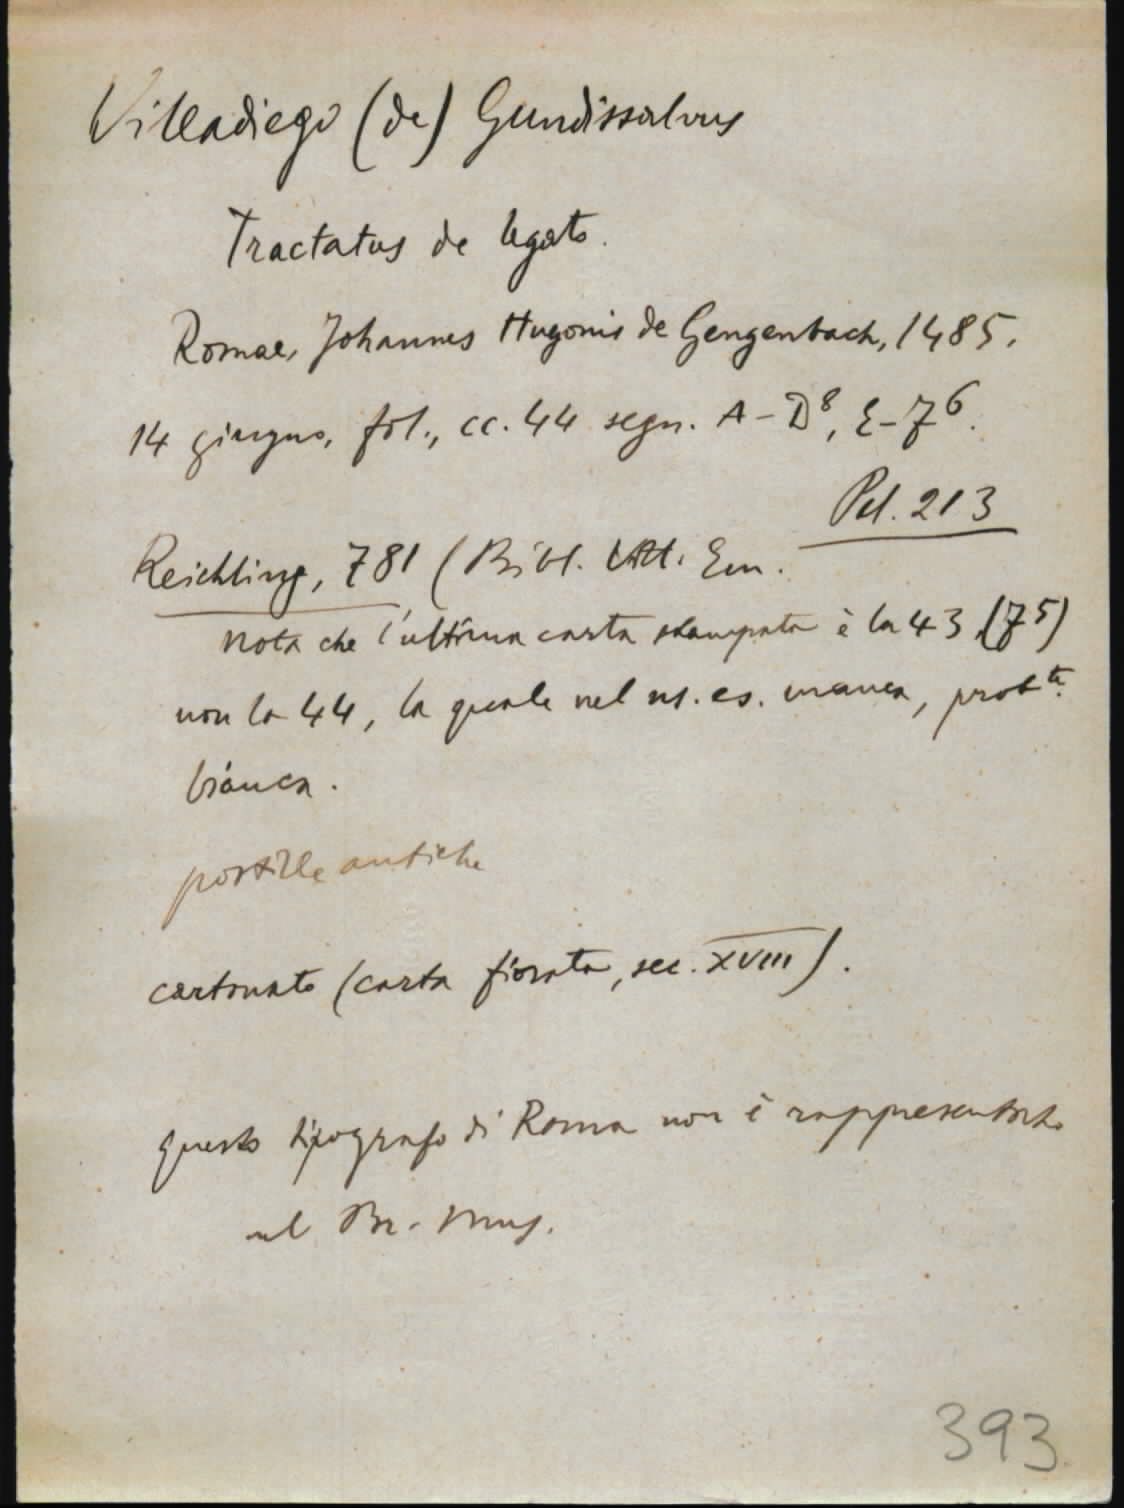 Villadiego (de) Gundissalvus
Tractatus de legato.
Romae, Johannes Hugonis de Gengenbach, 1485,
14 giugno, fol., cc. 44 segn. A-D⁸, E-7⁶.
Pel. 213
Reichling, 781 (Bibl. Vitt. Em.
Nota che l'ultima carta stampata è la 43 (7⁵)
non la 44, la quale nel ns. es. manca, prob.te
bianca.
postille antiche
cartonato (carta fiorata, sec. XVIII).
questo tipografo di Roma non è rappresentato
nel Br. Mus.
393